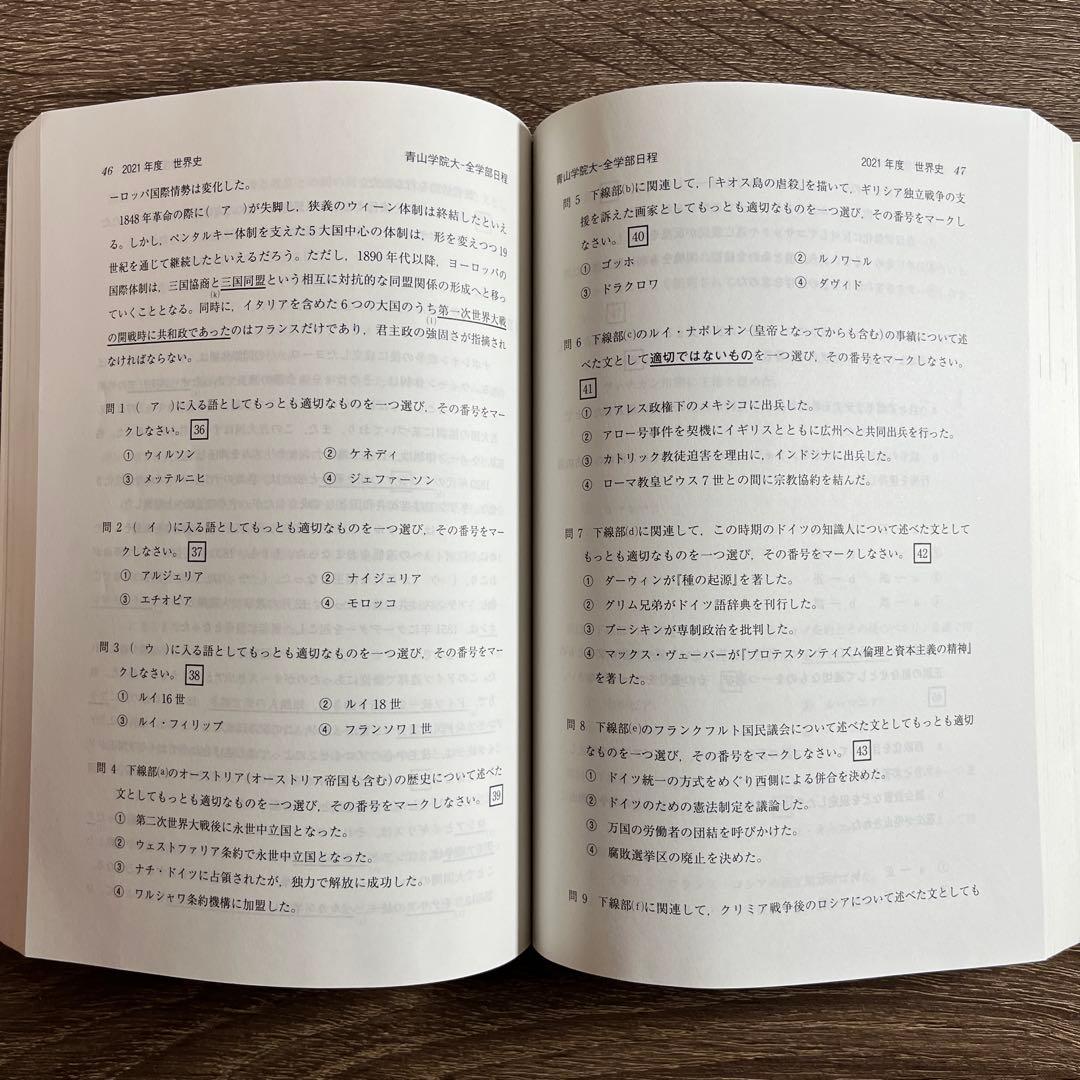 46 2021年度 世界史 青山学院大-全学部日程
ーロッパ国際情勢は変化した。
1848年革命の際に(ア)が失脚し，狭義のウィーン体制は終結したといえ
る。しかし，ペンタルキー体制を支えた5大国中心の体制は，形を変えつつ19
世紀を通じて継続したといえるだろう。ただし，1890年代以降，ヨーロッパの
国際体制は，三国協商と三国同盟という相互に対抗的な同盟関係の形成へと移っ
(k)
ていくこととなる。同時に，イタリアを含めた6つの大国のうち第一次世界大戦
(l)
の開戦時に共和政であったのはフランスだけであり，君主政の強固さが指摘され
なければならない。
問1 (ア)に入る語としてもっとも適切なものを一つ選び，その番号をマー
クしなさい。 36
① ウィルソン ② ケネディ
③ メッテルニヒ ④ ジェファーソン
問2 (イ)に入る語としてもっとも適切なものを一つ選び，その番号をマー
クしなさい。 37
① アルジェリア ② ナイジェリア
③ エチオピア ④ モロッコ
問3 (ウ)に入る語としてもっとも適切なものを一つ選び，その番号をマー
クしなさい。 38
① ルイ16世 ② ルイ18世
③ ルイ・フィリップ ④ フランソワ1世
問4 下線部(a)のオーストリア(オーストリア帝国も含む)の歴史について述べた
文としてもっとも適切なものを一つ選び，その番号をマークしなさい。 39
① 第二次世界大戦後に永世中立国となった。
② ウェストファリア条約で永世中立国となった。
③ ナチ・ドイツに占領されたが，独力で解放に成功した。
④ ワルシャワ条約機構に加盟した。
青山学院大-全学部日程 2021年度 世界史 47
問5 下線部(b)に関連して，「キオス島の虐殺」を描いて，ギリシア独立戦争の支
援を訴えた画家としてもっとも適切なものを一つ選び，その番号をマークし
なさい。 40
① ゴッホ ② ルノワール
③ ドラクロワ ④ ダヴィド
問6 下線部(c)のルイ・ナポレオン(皇帝となってからも含む)の事績について述
べた文として適切ではないものを一つ選び，その番号をマークしなさい。
41
① フアレス政権下のメキシコに出兵した。
② アロー号事件を契機にイギリスとともに広州へと共同出兵を行った。
③ カトリック教徒迫害を理由に，インドシナに出兵した。
④ ローマ教皇ピウス7世との間に宗教協約を結んだ。
問7 下線部(d)に関連して，この時期のドイツの知識人について述べた文として
もっとも適切なものを一つ選び，その番号をマークしなさい。 42
① ダーウィンが『種の起源』を著した。
② グリム兄弟がドイツ語辞典を刊行した。
③ プーシキンが専制政治を批判した。
④ マックス・ヴェーバーが『プロテスタンティズム倫理と資本主義の精神』
を著した。
問8 下線部(e)のフランクフルト国民議会について述べた文としてもっとも適切
なものを一つ選び，その番号をマークしなさい。 43
① ドイツ統一の方式をめぐり西側による併合を決めた。
② ドイツのための憲法制定を議論した。
③ 万国の労働者の団結を呼びかけた。
④ 腐敗選挙区の廃止を決めた。
問9 下線部(f)に関連して，クリミア戦争後のロシアについて述べた文としても